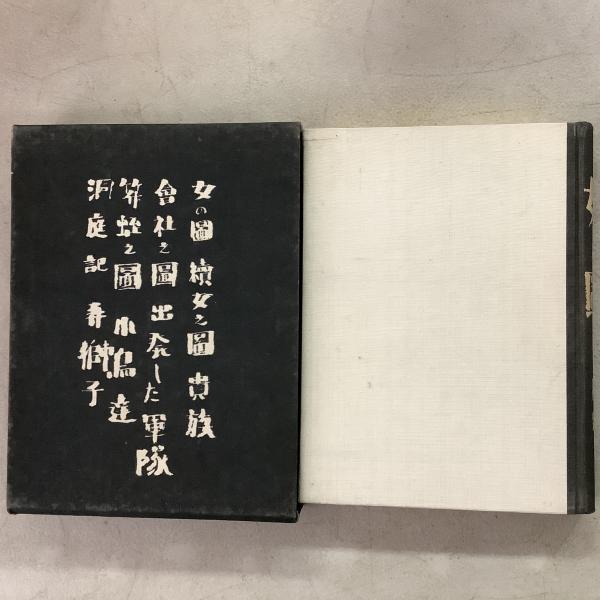 女の圖 續女之圖 貴族
會社之圖 出発した軍隊
算蛭之圖 小鳥達
洞庭記 春獅子
女 圖